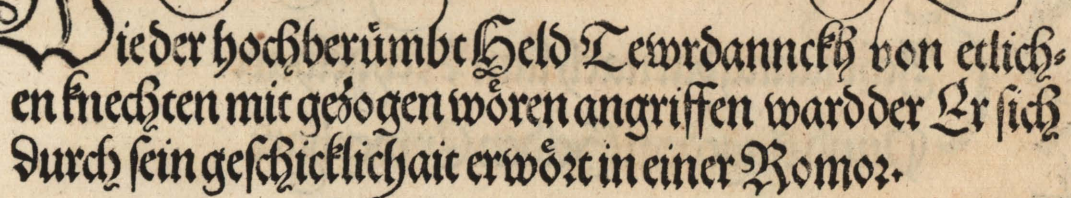 Wie der hochberuͤmbt Held Tewrdannckh von etlich⸗
en knechten mit gezogen woͤren angriffen ward der Er sich
durch sein geschicklichait erwoͤrt in einer Romor.